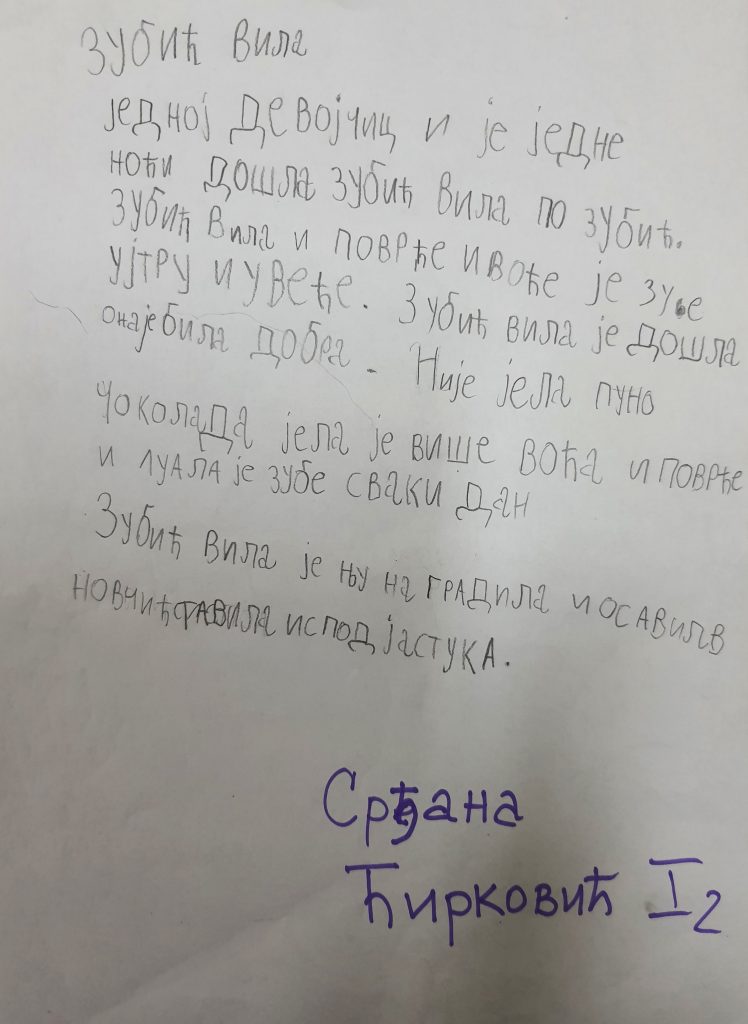 Зубић вила
једној девојчиц и је једне
ноћи дошла зубић вила по зубић.
Зубић вила и поврће и воће је
ујтру и увеће. Зубић вила је дошла
онаје била добра. Није јела пуно
чоколада јела је више воћа и поврће
и луала је зубе сваки дан
Зубић вила је њу на градила и осавилв
новчић ставила испод јастука.
Срђана
Ћирковић I2